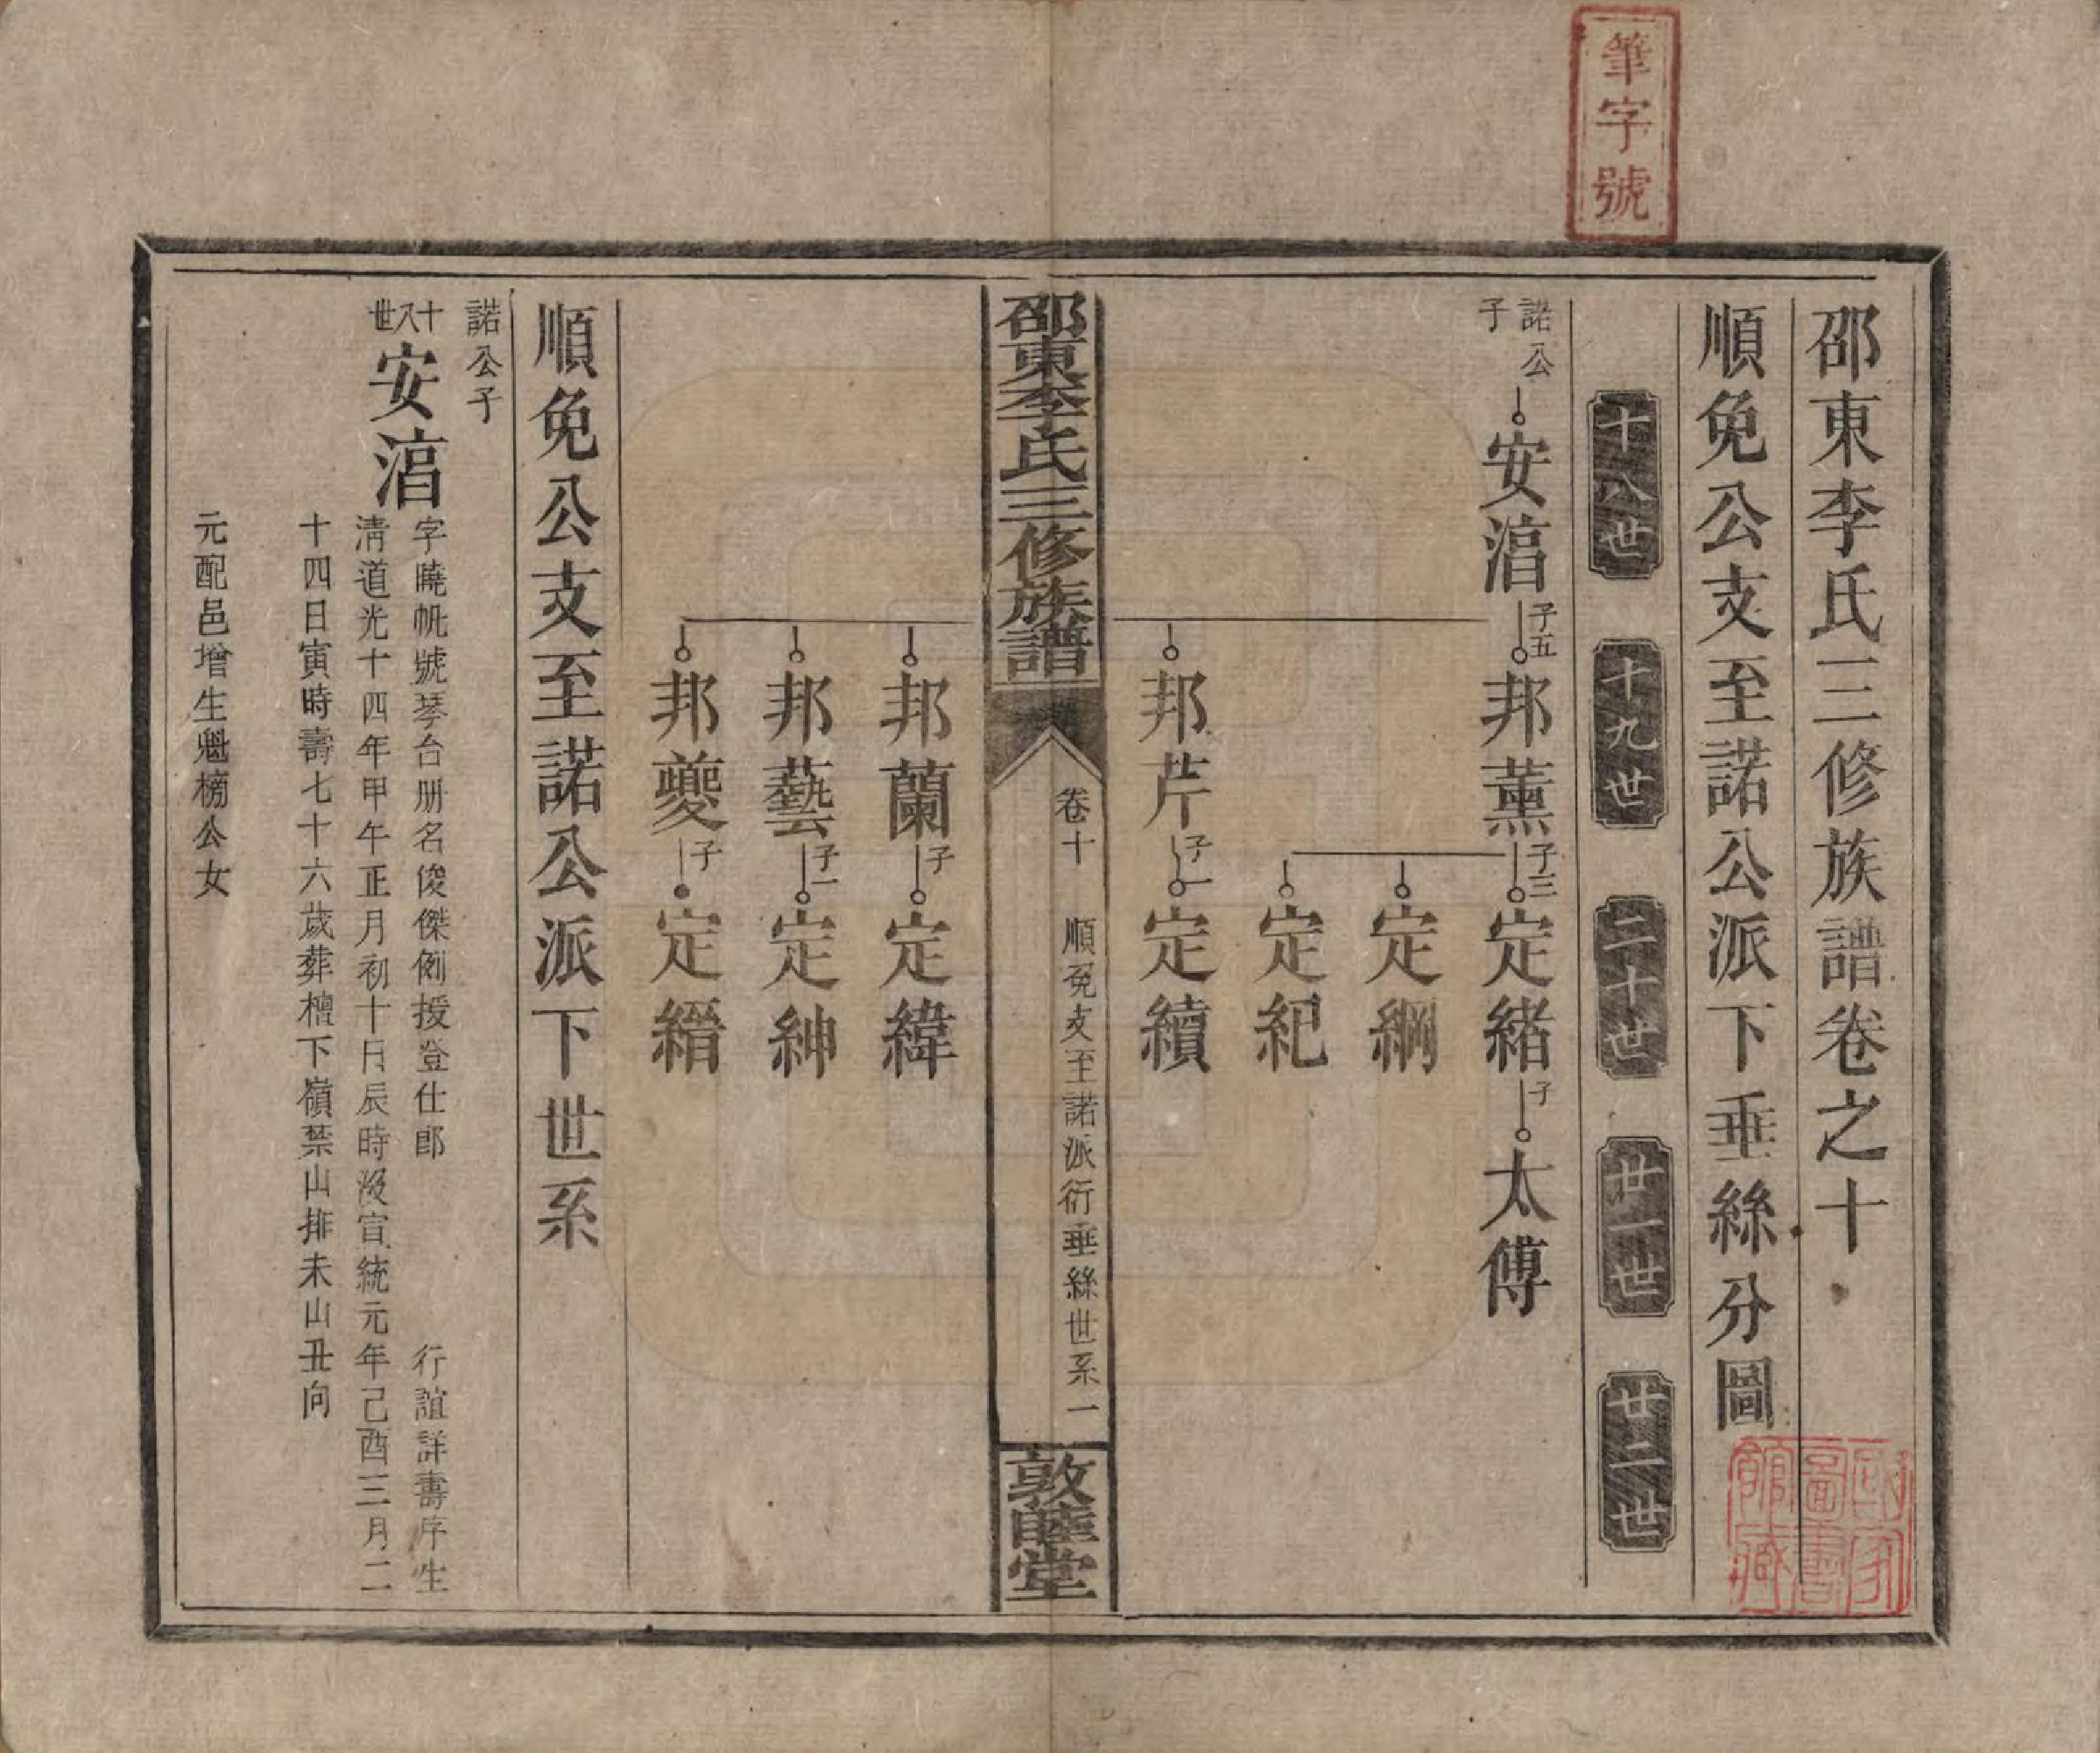 筆字號
邵東李氏三修族譜卷之十
順免公支至諾公派下垂絲分圖
十八世
十九世
二十世
廿一世
廿二世
諾公子
安湻
子五
邦薰
子三
定緒
子
太傅
定綱
定紀
邦芹
子一
定續
邵東李氏三修族譜
卷十
順免支至諾派衍垂絲世系
一
敦睦堂
邦蘭
子
定緯
邦藝
子一
定紳
邦夔
子
定縉
順免公支至諾公派下世系
諾公子
十八世
安湻
字曉帆號琴台册名俊傑例授登仕郎 行誼詳壽序生
清道光十四年甲午正月初十日辰時沒宣統元年己酉三月二
十四日寅時壽七十六歲葬檀下嶺禁山排未山丑向
元配邑增生魁榜公女
國家圖書館藏